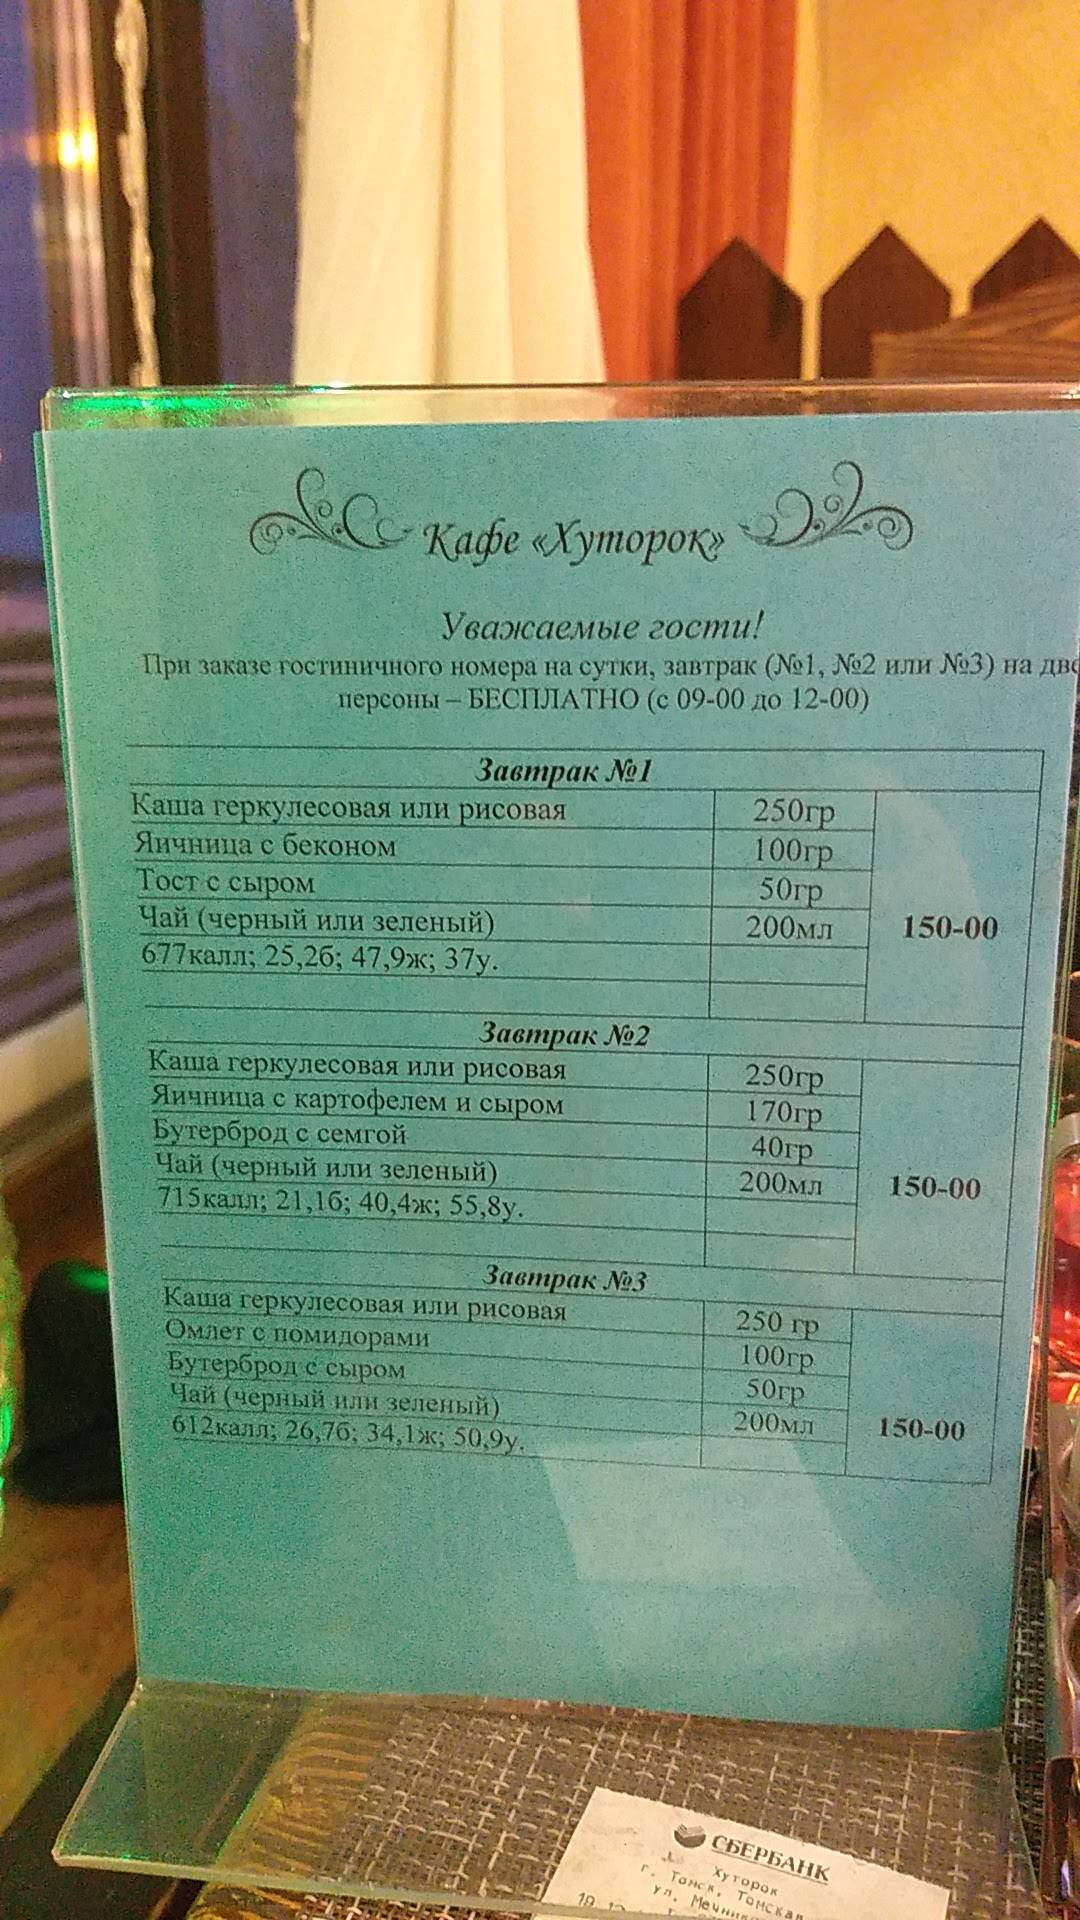 Кафе «Хуторок»
Уважаемые гости!
При заказе гостиничного номера на сутки, завтрак (№1, №2 или №3) на две
персоны – БЕСПЛАТНО (с 09-00 до 12-00)
Завтрак №1
Каша геркулесовая или рисовая 250гр
Яичница с беконом 100гр
Тост с сыром 50гр
Чай (черный или зеленый) 200мл 150-00
677калл; 25,2б; 47,9ж; 37у.
Завтрак №2
Каша геркулесовая или рисовая 250гр
Яичница с картофелем и сыром 170гр
Бутерброд с семгой 40гр
Чай (черный или зеленый) 200мл 150-00
715калл; 21,1б; 40,4ж; 55,8у.
Завтрак №3
Каша геркулесовая или рисовая 250 гр
Омлет с помидорами 100гр
Бутерброд с сыром 50гр
Чай (черный или зеленый) 200мл 150-00
612калл; 26,7б; 34,1ж; 50,9у.
СБЕРБАНК
Хуторок
г. Томск, Томская
ул.